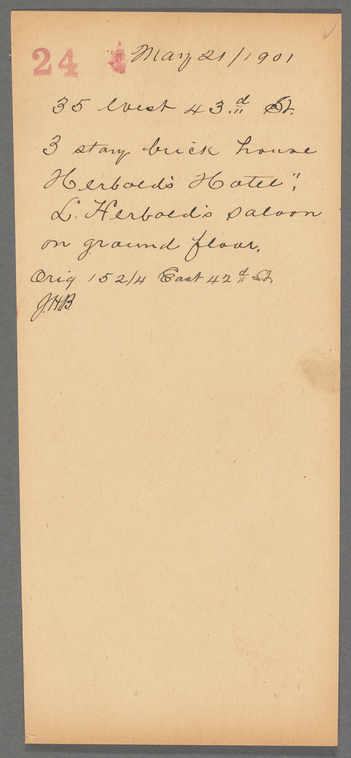 24 May 21/1901
35 West 43.d St.
3 story brick house
Herbold's Hotel",
L. Herbold's saloon
on ground floor.
Orig 152/4 East 42d St.
J.H.B.